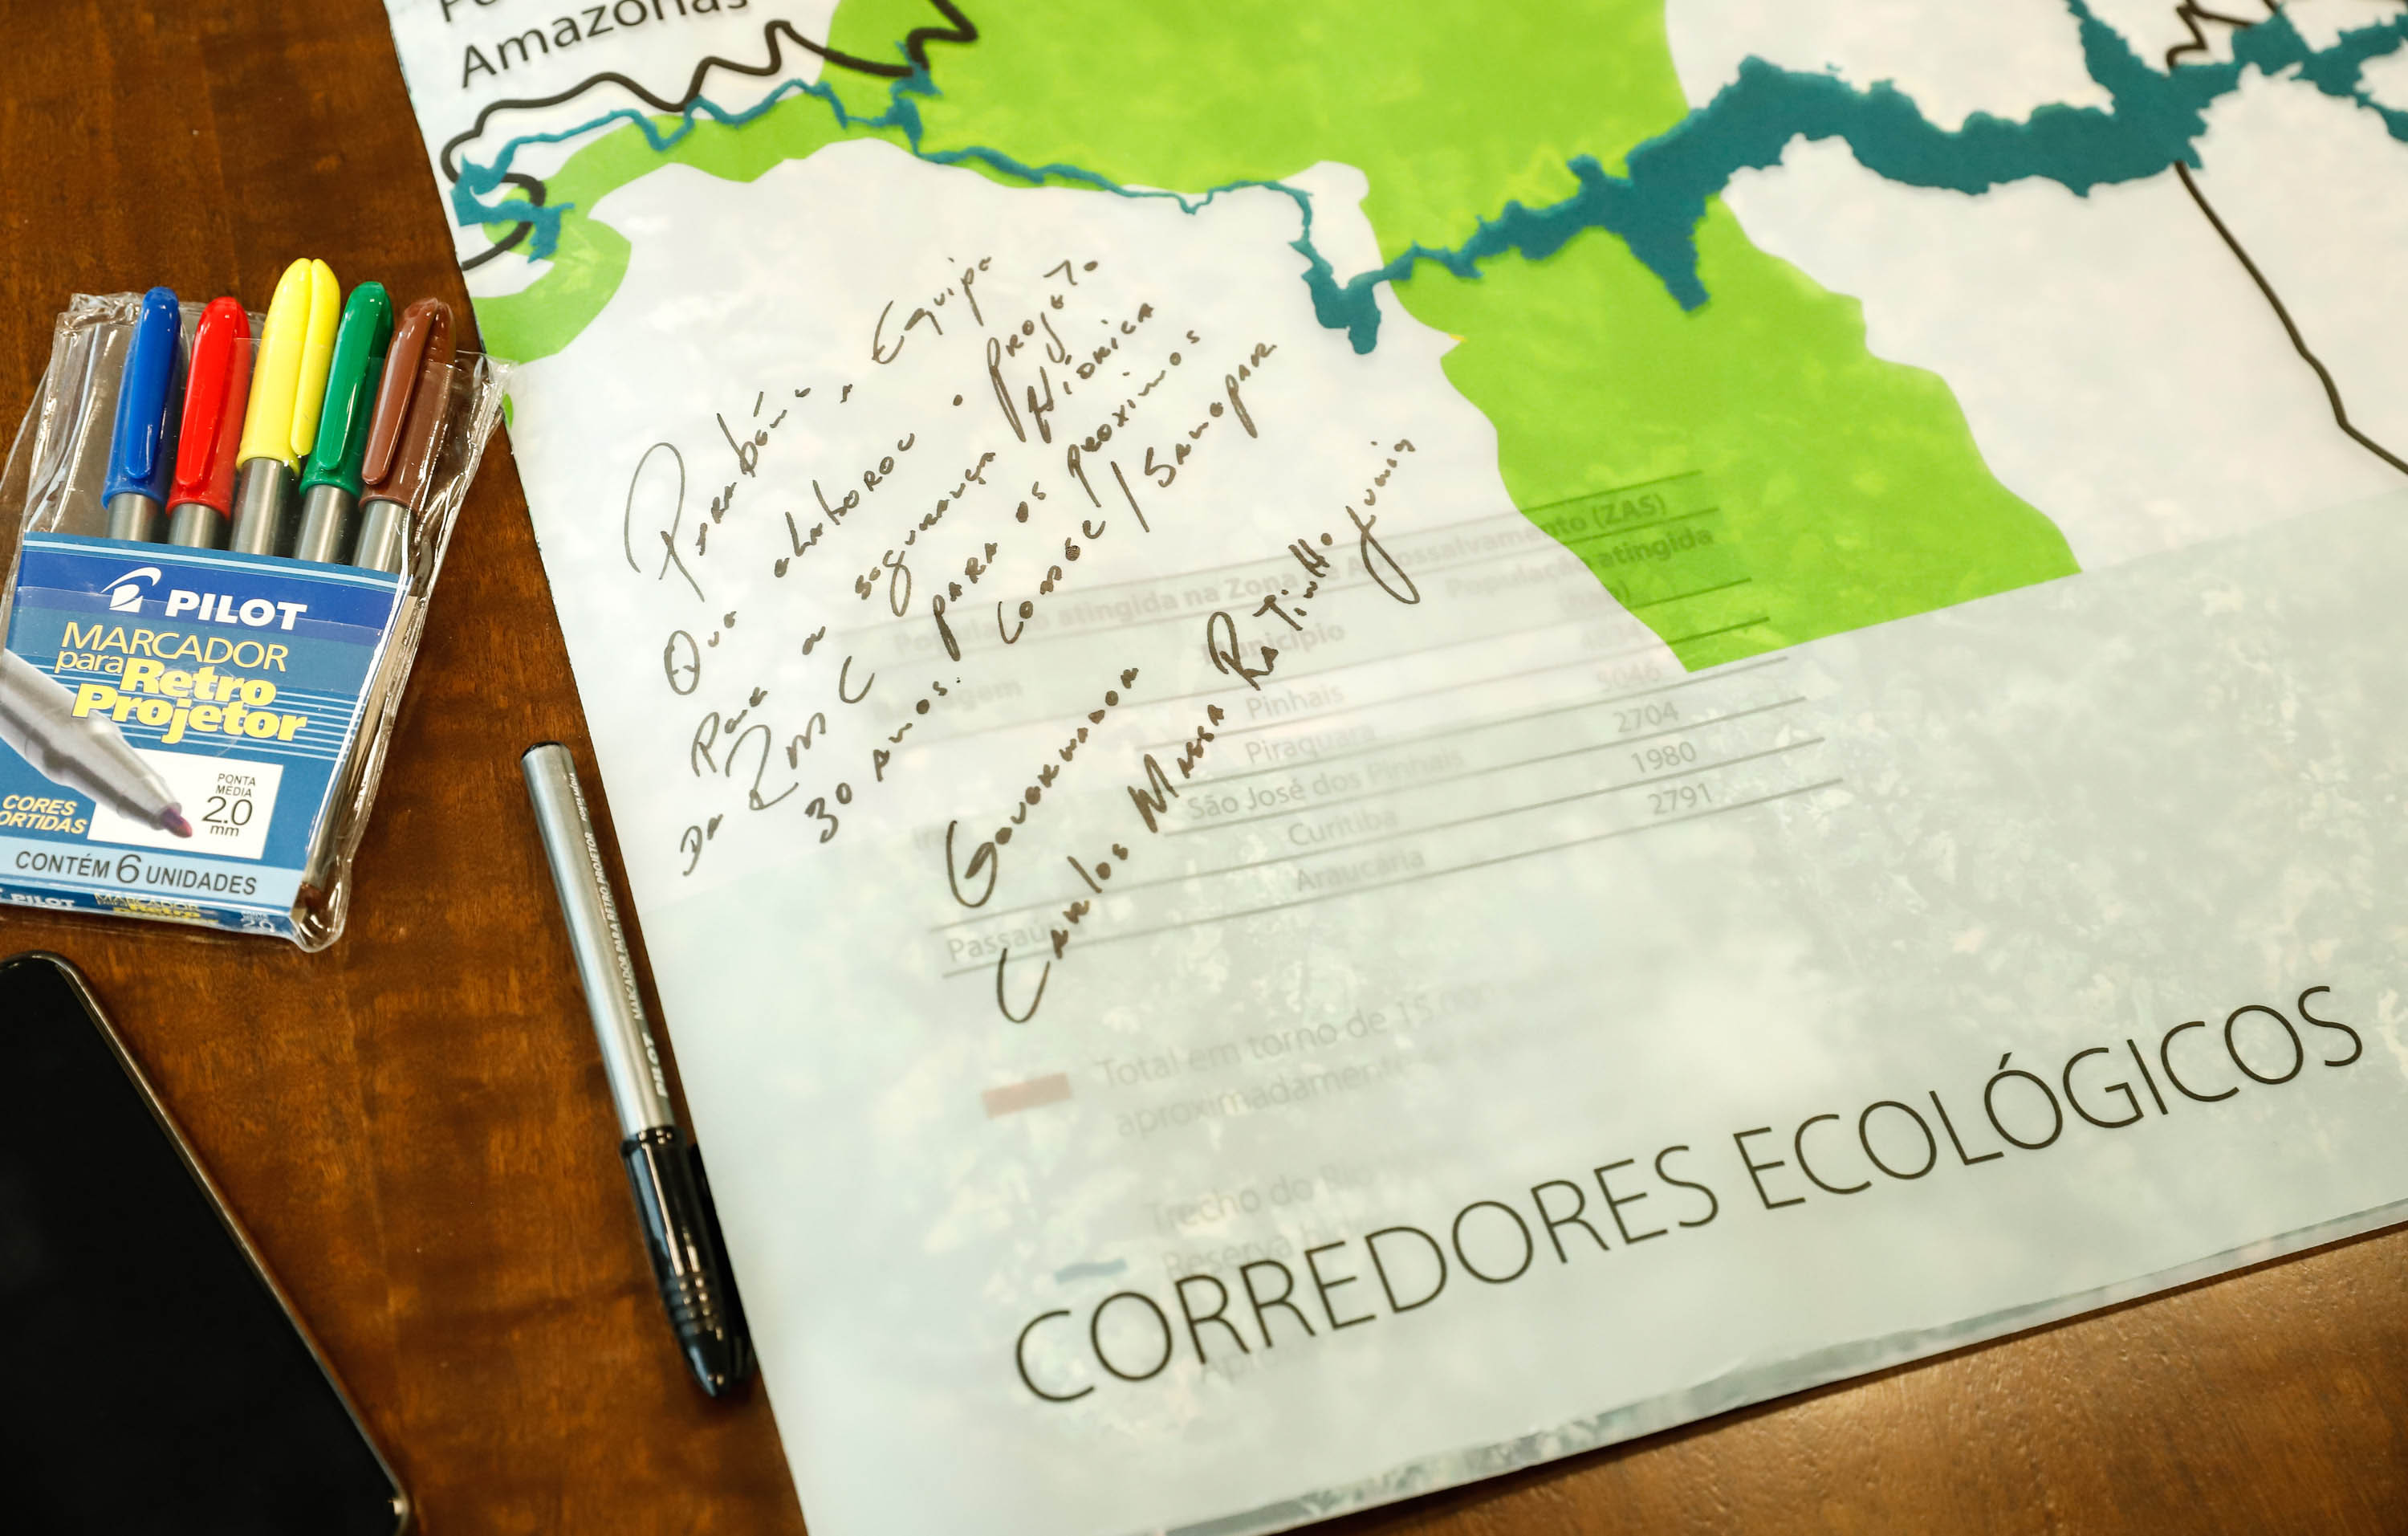 Amazonas
Parabéns a Equipe
Que elaborou o Projeto
Para a segurança Hídrica
Da RMC para os proximos
30 anos. Comec / Sanepar
Governador
Carlos Massa Ratinho Junior
População atingida na Zona de Autossalvamento (ZAS)
Município
População atingida
Pinhais
5046
Piraquara
2704
São José dos Pinhais
1980
Curitiba
2791
Araucária
Passaúna
Total em torno de 15
aproximadamente
Trecho do Rio
Reserva
CORREDORES ECOLÓGICOS
PILOT
MARCADOR
para Retro
Projetor
PONTA
MÉDIA
2.0
mm
CORES
CONTÉM 6 UNIDADES
PILOT
PILOT MARCADOR PARA RETRO PROJETOR